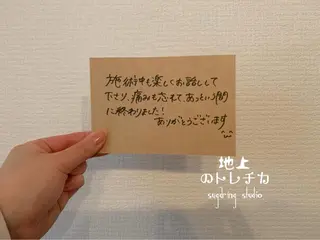 施術中も楽しくお話しして
下さり、痛みも忘れて、あっという間
に終わりました！
ありがとうございます
地上
のトレチカ
sugaring studio